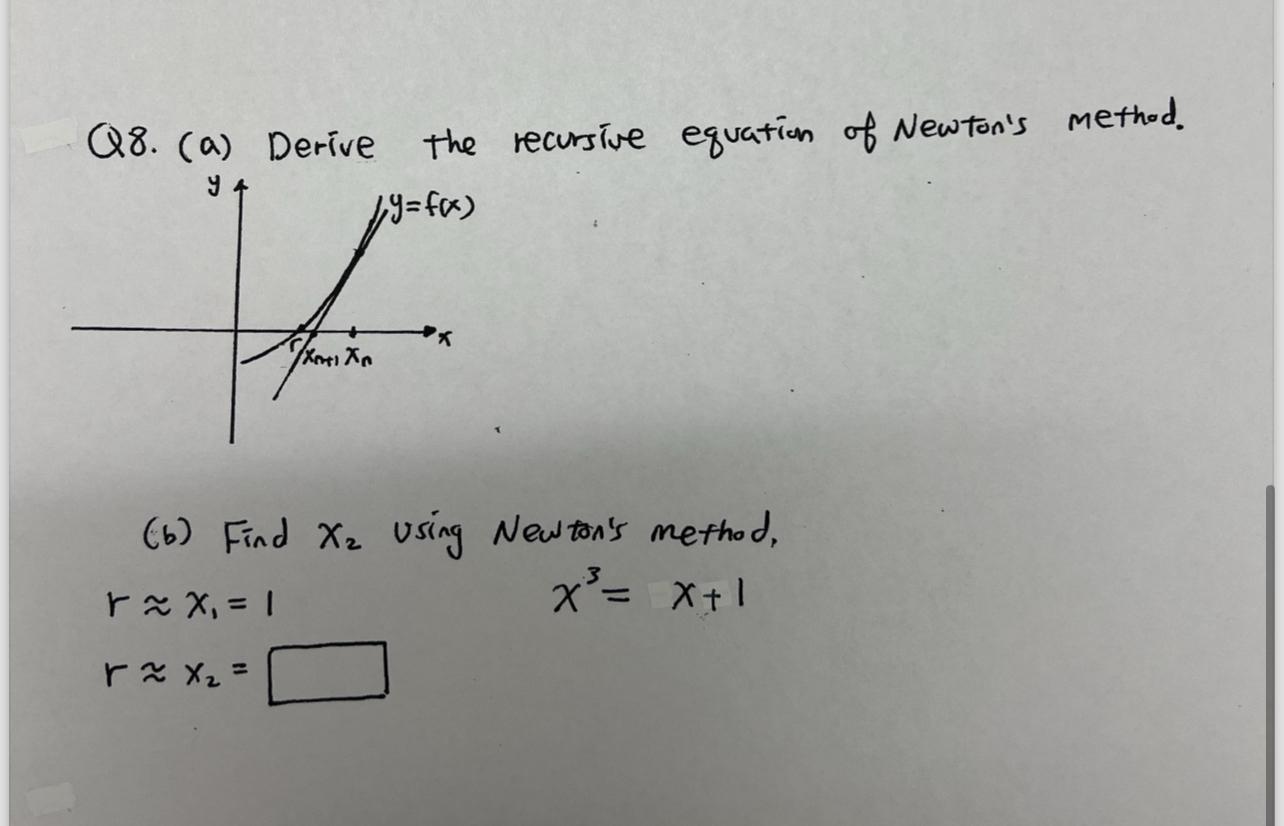 Q8. (a) Derive the recursive equation of Newton's method.
y
y=f(x)
x
r xn+1 xn
(b) Find x₂ using Newton's method,
r ≈ x₁ = 1
x³ = x+1
r ≈ x₂ =